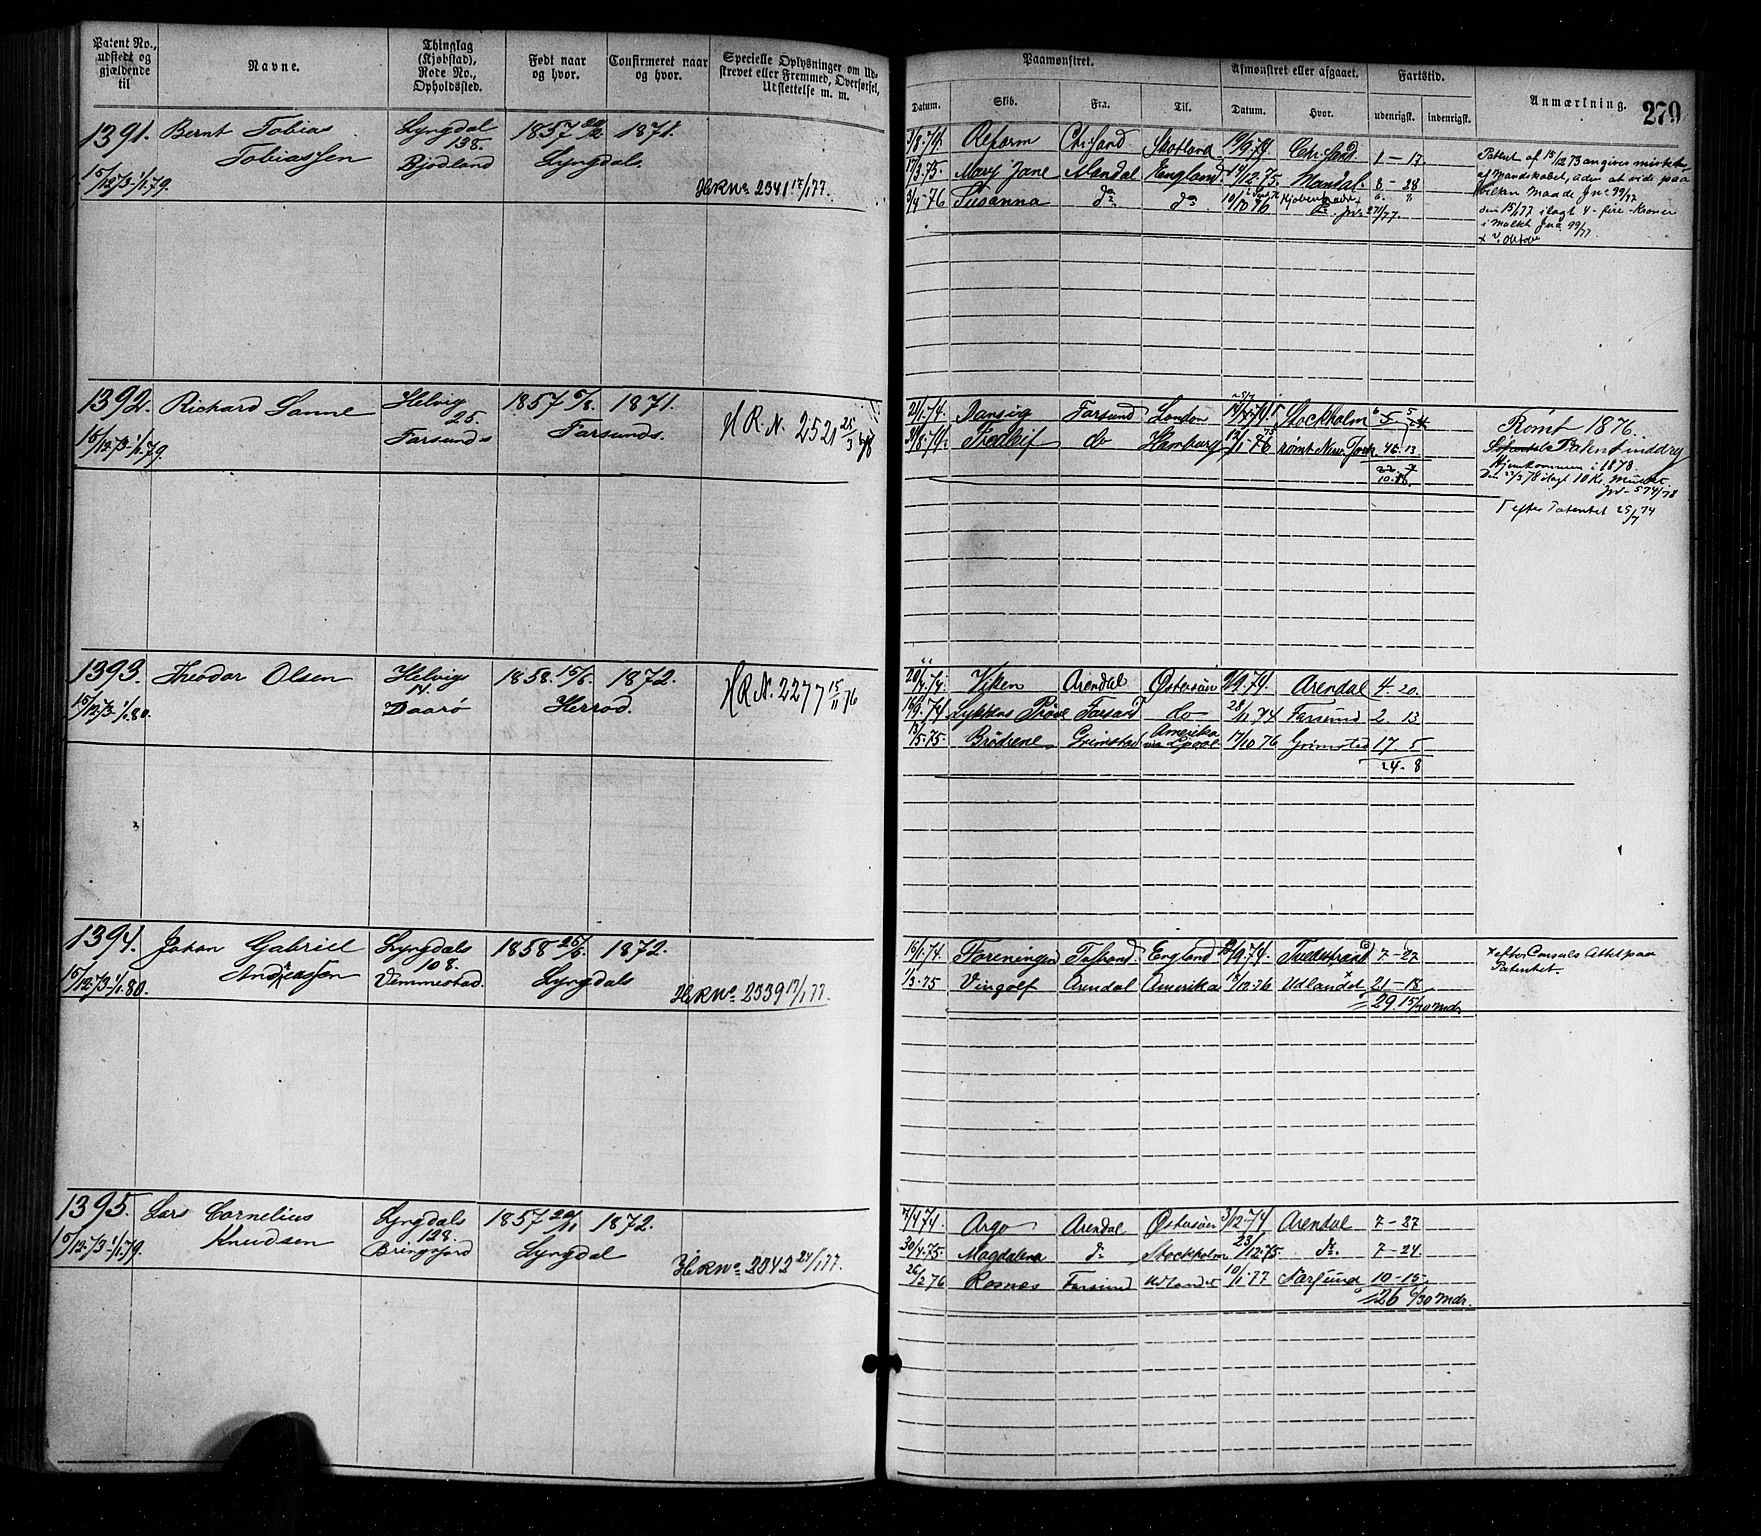 Patent No., udstedt og gjældende til
Navne.
Thinglag (Kjøbstad), Rode No., Opholdssted.
Født naar og hvor.
Confirmeret naar og hvor.
Specielle Oplysninger om Udstrevet eller Fremmed, Overførsel, Udslettelse m. m.
Paamønstret.
Afmønstret eller afgaaet.
Fartstid.
Anmærkning.
279
Datum.
Skib.
Fra.
Til.
Datum.
Hvor.
udenrigsk.
indenrigsk.
1391. Bernt Tobias Lyngdal 1857 1871.
Tobiassen 138. Lyngdals
15/12 73-1/1 79. Bjodland HRNo 2341 17/1 77.
1/8 74. Reform Chr.sand Skotland 19/9 74 Chr.sand 1-17
17/3 75. Mary Jane Mandal England 14/12 75. Mandal 8-28
3/4-76 Susanna do do 10/10 76
Patent af 15/12 73 angives mistet
af Mandskabet, uden at vide paa
hvilken Maade Jno 99/77
den 15/1 77 ilagt 4-fire-Kroner
i Mulkt Jno 99/77.
1392. Richard Sanne Helvig 1857 6/8. 1871.
25. Farsunds.
15/12 73-1/1 79. Farsunds HR.N. 2521 25/3 78
21/1 74. Dansig Farsund London Stockholm
31/8 74. Fredbif do Hamburg rømt New York 46. 13
Rømt 1876
Patent inddrg
Hjemkommen i 1878.
10 Kr. Mulkt
Jno 574/78
efter Patentet 25/7 74
1393. Theodor Olsen Helvigs 1858. 15/6. 1872.
14 Herred.
15/12 73-1/1 80. Daarø HR.N. 2277 15/11 76
20/4 74. Viken Arendal Østersøen 9/9 74. Arendal 4. 20.
Lykkens Prøve Farsund do 28/11 74 Farsund 2. 13
13/5 75. Brødrene Grimstad Amerika via Lpool 17/10 76 Grimsted 17. 5
24. 8
1394. Johan Gabriel Lyngdals 1858 25/6. 1872.
Andreassen 108. Lyngdals
15/12 73-1/1 80. Vemmestad HRNo 2339 17/1 77
15/1 74. Foreningen England 74. Tvedestrand 7-27
1/3 75 Vingolf Arendal Amerika 18/12 76 Udlandet x 21-18
29 15/30 mdr
x efter Consuls Attst paa
Patentet.
1395. Lars Cornelius Lyngdals 1857 20/11 1872.
Knudsen 128. Lyngdal
15/12 73-1/1 79. Bringsjord HRNo 2342 24/1 77.
7/4 74 Argo Arendal Østersøen 3/12 74 Arendal 7-27
30/4 75. Magdalena do Stockholm 23/12 75. do. 7-24
26/2 76 Rosnæs Farsund Udlandet 10/1 77 Farsund 10-15
26 6/30 mdr.